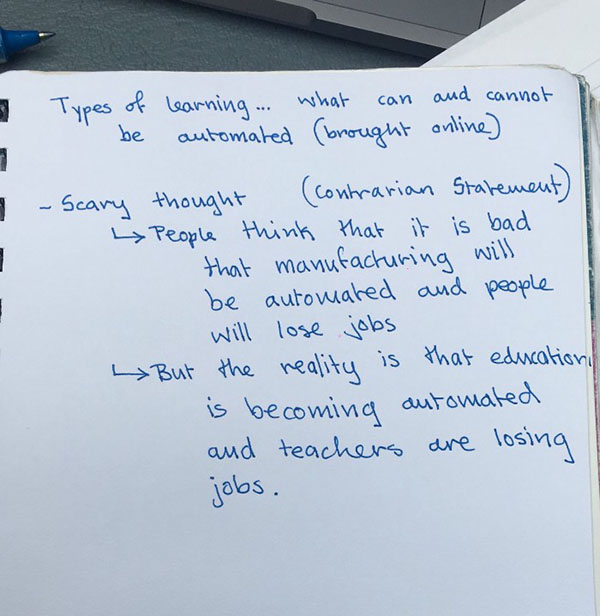 Types of learning... what can and cannot
be automated (brought online)
- Scary thought (Contrarian Statement)
↳ People think that it is bad
that manufacturing will
be automated and people
will lose jobs
↳ But the reality is that education
is becoming automated
and teachers are losing
jobs.